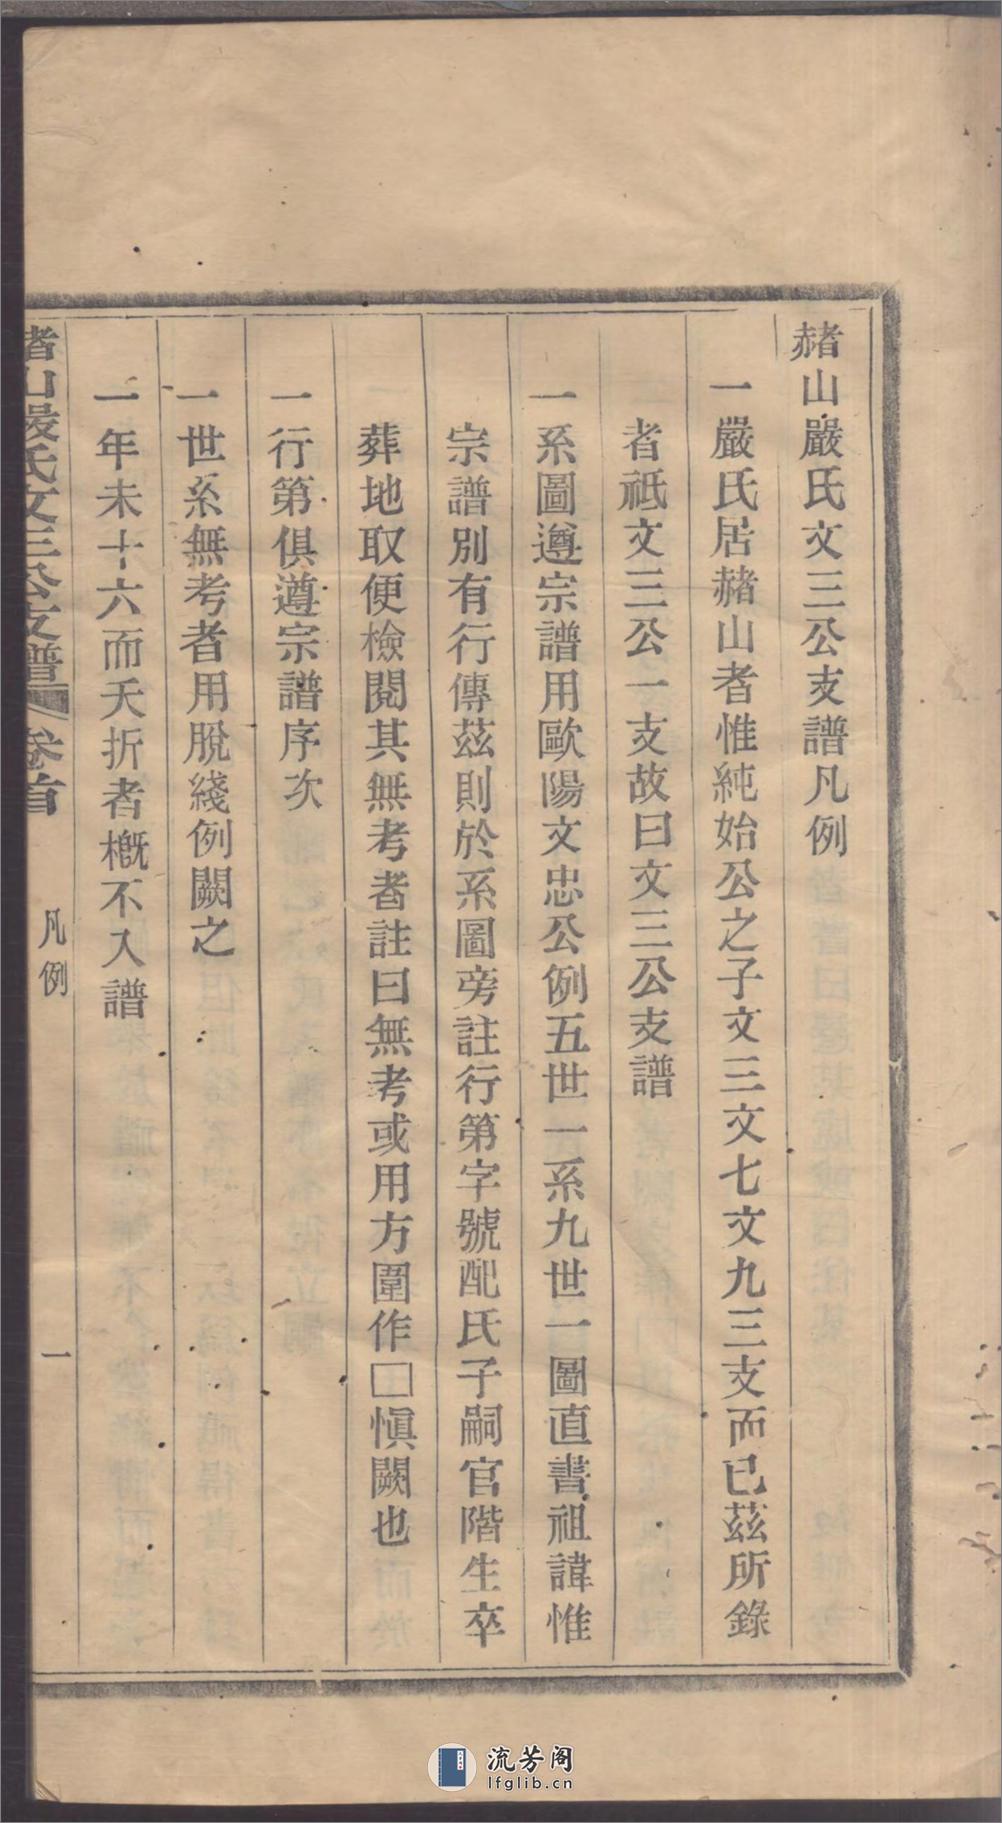 赭山嚴氏文三公支譜凡例
一嚴氏居赭山者惟純始公之子文三文七文九三支而已茲所錄
者祗文三公一支故曰文三公支譜
一系圖遵宗譜用歐陽文忠公例五世一系九世一圖直書祖諱惟
宗譜別有行傳茲則於系圖旁註行第字號配氏子嗣官階生卒
葬地取便檢閱其無考者註曰無考或用方圍作□慎闕也
一行第俱遵宗譜序次
一世系無考者用脫綫例闕之
一年未十六而夭折者槪不入譜
赭山嚴氏文三公支譜 卷首 凡例 一
流芳阁
lfglib.cn